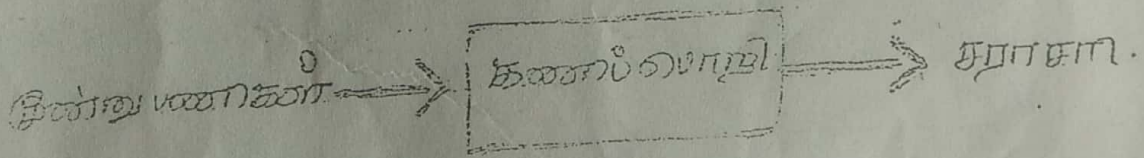 மூன்று பணாகள்
கணப்பொறி
சராசா.